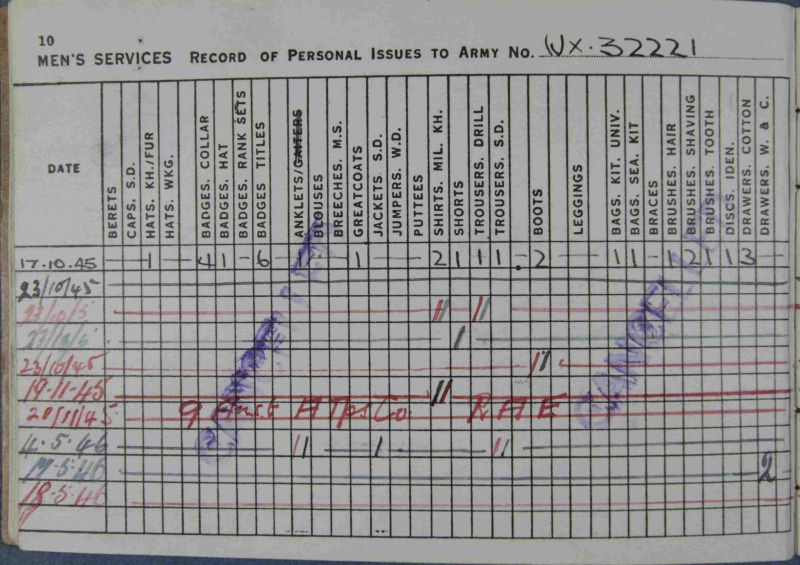 10
MEN'S SERVICES RECORD OF PERSONAL ISSUES TO ARMY No. WX.32221
DATE
BERETS
CAPS. S.D.
HATS. KH./FUR
HATS. WKG.
BADGES. COLLAR
BADGES. HAT
BADGES. RANK SETS
BADGES TITLES
ANKLETS/GAITERS
BLOUSES
BREECHES. M.S.
GREATCOATS
JACKETS. S.D.
JUMPERS. W.D.
PUTTEES
SHIRTS. MIL. KH.
SHORTS
TROUSERS. DRILL
TROUSERS. S.D.
BOOTS
LEGGINGS
BAGS. KIT. UNIV.
BAGS. SEA. KIT
BRACES
BRUSHES. HAIR
BRUSHES. SHAVING
BRUSHES. TOOTH
DISCS. IDEN.
DRAWERS. COTTON
DRAWERS. W. & C.
17.10.45 — — 1 — 4 1 - 6 1 — — 1 — — 2 1 1 1 . - 2 — 1 1 - 1 2 1 1 3
23/10/45
23/10/5 // //
23/10/6 //
23/10/45 //
19-11-45 //
20/11/45 9 Aust A Tps Co RAE
4.5.46 // / //
17.5.46 2
18.5.46
CANCELLED
CANCELLED